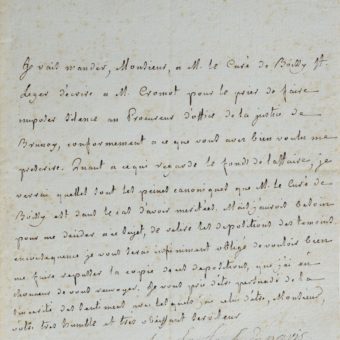 Je vais mander, Monsieur, a M. le Curé de Boissy St.
Leger d'écrire a M. Cromot pour le prier de faire
imposer silence au Procureur d'office de la justice de
Brunoy, conformement a ce que vous avez bien voulu me
prescrire. Quant a ce qui regarde le fonds de l'affaire, je
verrai quelles sont les peines canoniques que M. le Curé de
Boissy est dans le cas d'avoir meritées. Mais j'aurois besoin
pour me décider a ce sujet, de relire les depositions des temoins.
en consequence je vous serai infiniment obligé de vouloir bien
me faire repasser la copie de ces depositions, que j'ai eu
l'honneur de vous renvoyer. Je vous prie d'être persuadé de la
sincerité des sentimens avec lesquels j'ai celui d'être, Monsieur,
votre tres humble et tres obéissant serviteur